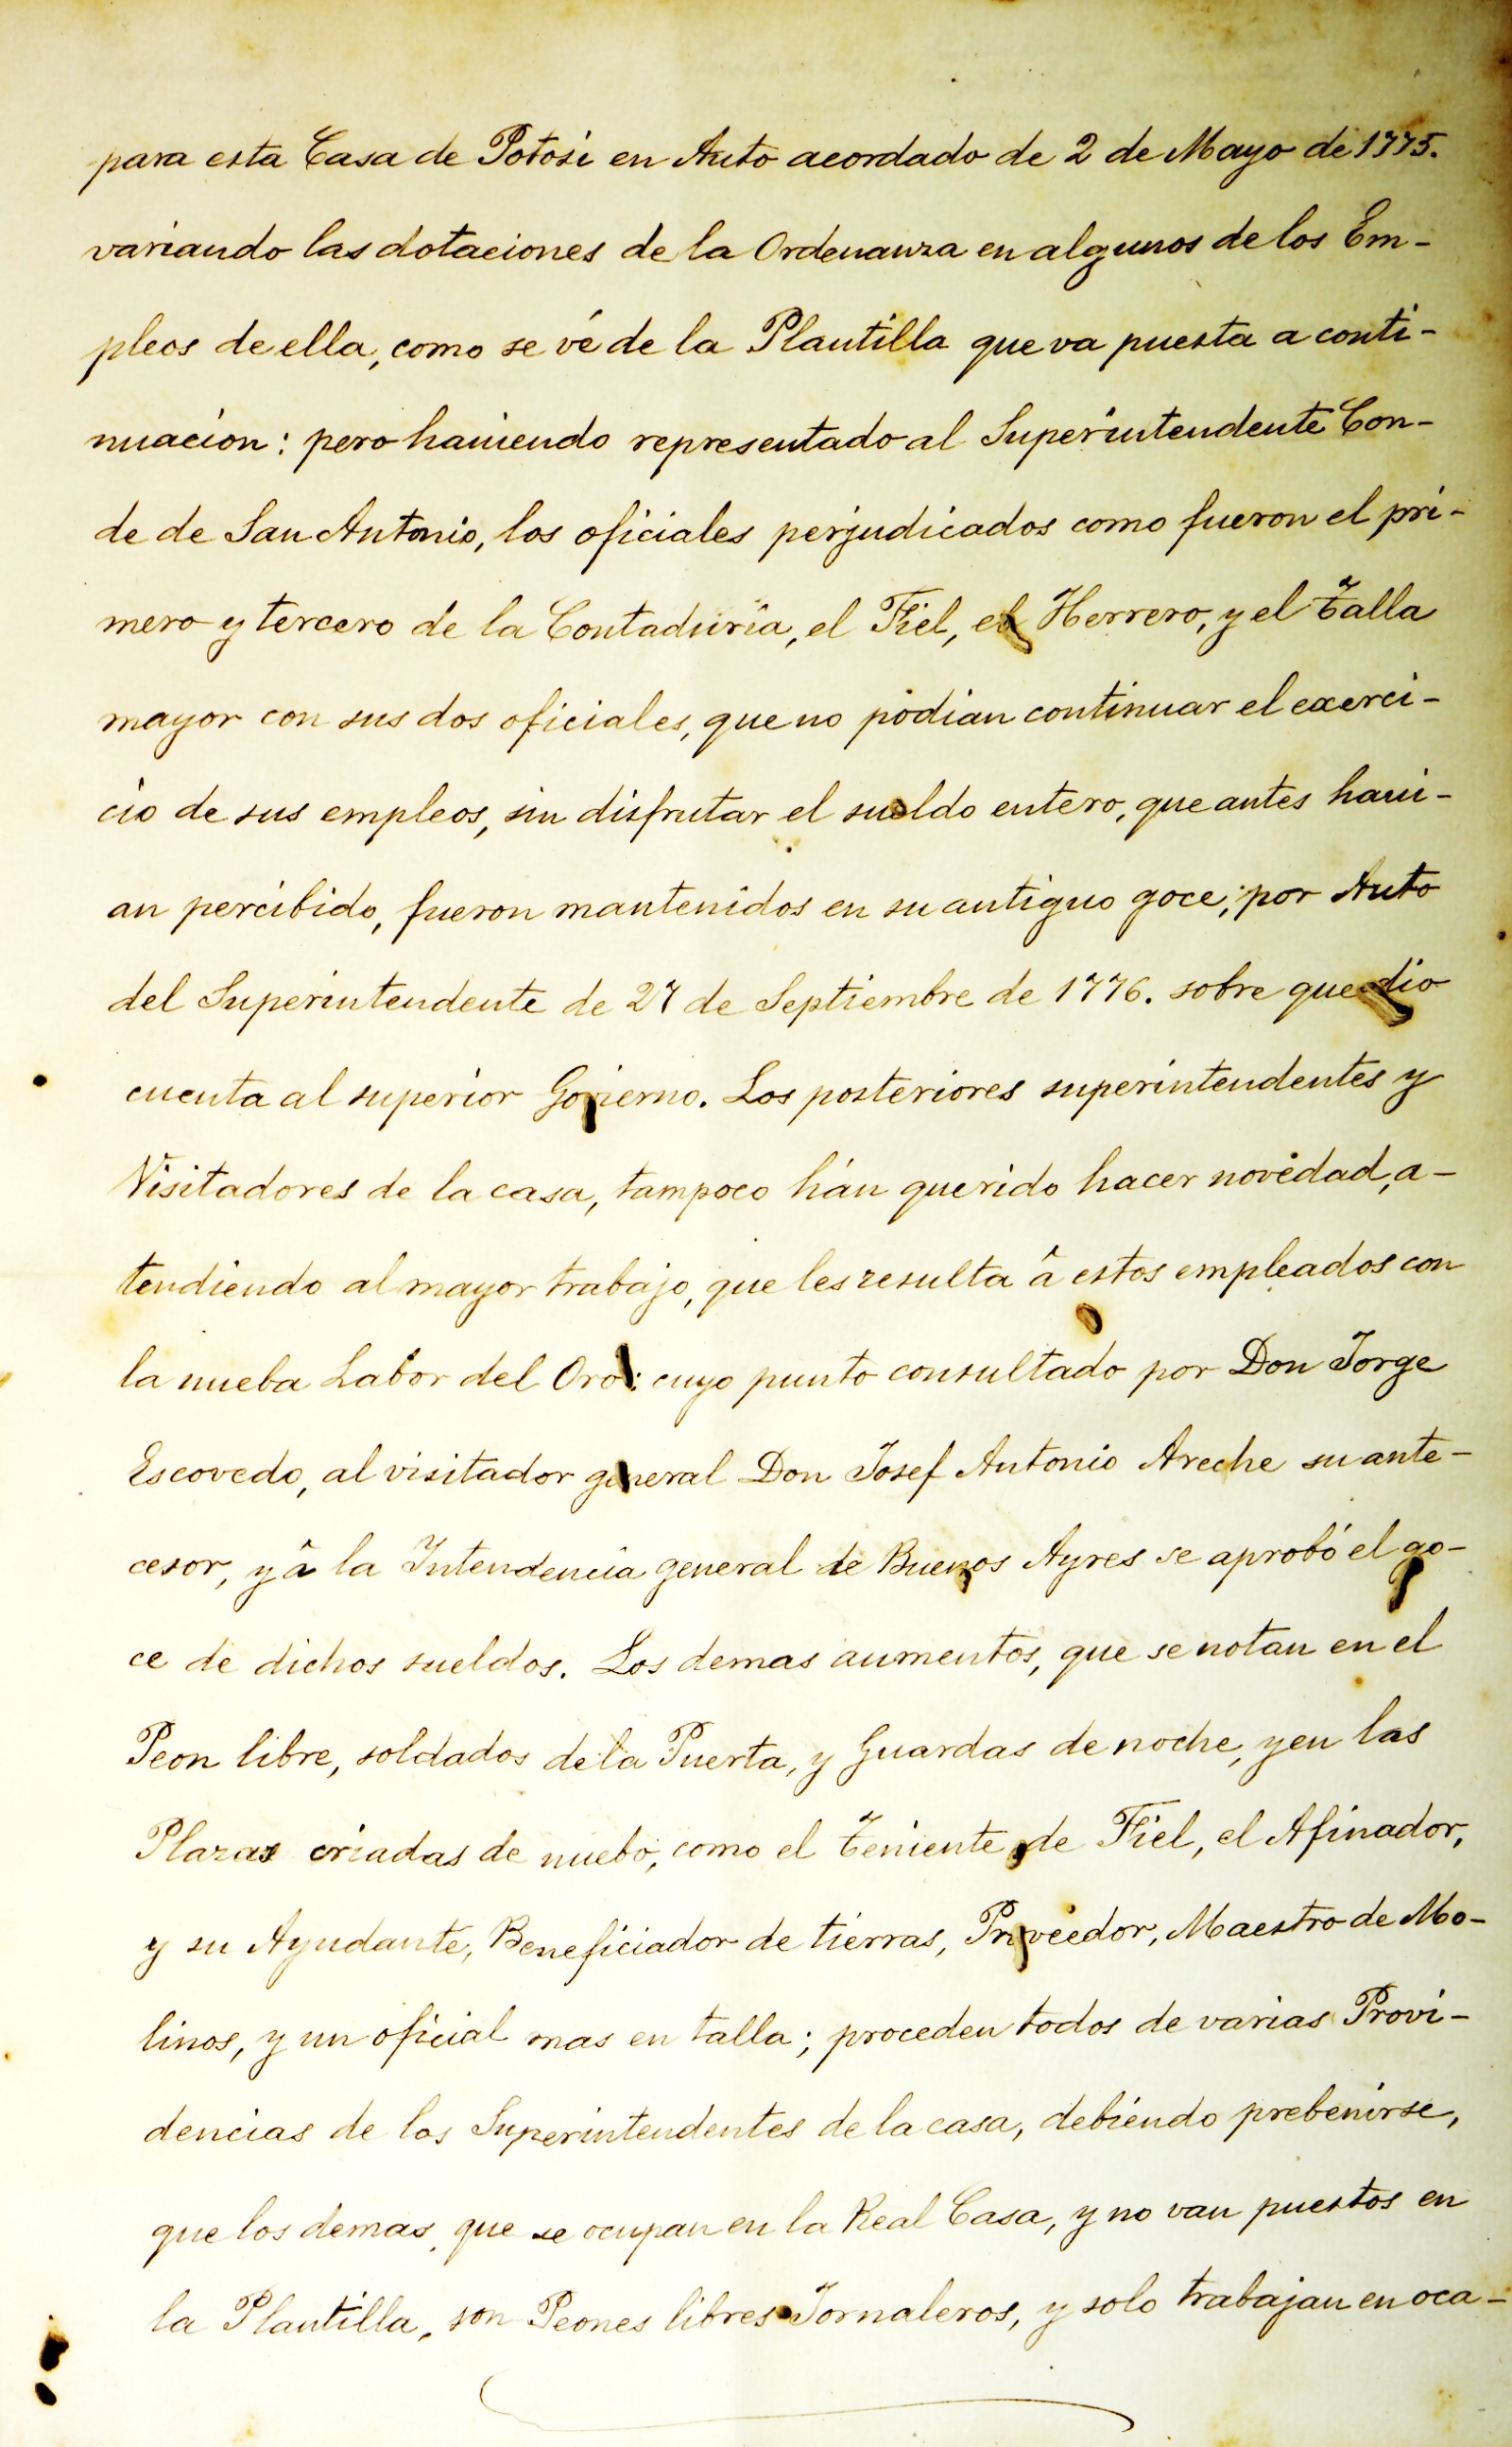 para esta Casa de Potosi en Auto acordado de 2 de Mayo de 1775.
variando las dotaciones de la Ordenanza en algunos de los Em-
pleos de ella, como se vé de la Plantilla que va puesta a conti-
nuacion: pero haviendo representado al Superintendente Con-
de de San Antonio, los oficiales perjudicados como fueron el pri-
mero y tercero de la Contaduría, el Fiel, el Herrero, y el Talla
mayor con sus dos oficiales, que no podian continuar el exerci-
cio de sus empleos, sin disfrutar el sueldo entero, que antes havi-
an percibido, fueron mantenidos en su antiguo goce, por Auto
del Superintendente de 27 de Septiembre de 1776. sobre que dio
cuenta al superior Govierno. Los posteriores superintendentes y
Visitadores de la casa, tampoco hán querido hacer novedad, a-
tendiendo al mayor trabajo, que les resulta â estos empleados con
la nueba Labor del Oro: cuyo punto consultado por Don Jorge
Escovedo, al visitador general Don Josef Antonio Areche su ante-
cesor, y â la Intendencia general de Buenos Ayres se aprobó el go-
ce de dichos sueldos. Los demas aumentos, que se notan en el
Peon libre, soldados de la Puerta, y Guardas de noche, y en las
Plazas criadas de nuebo, como el Teniente de Fiel, el Afinador,
y su Ayudante, Beneficiador de tierras, Proveedor, Maestro de Mo-
linos, y un oficial mas en talla; proceden todos de varias Provi-
dencias de los Superintendentes de la casa, debiendo prebenirse,
que los demas, que se ocupan en la Real Casa, y no van puestos en
la Plantilla, son Peones libres Jornaleros, y solo trabajan en oca-